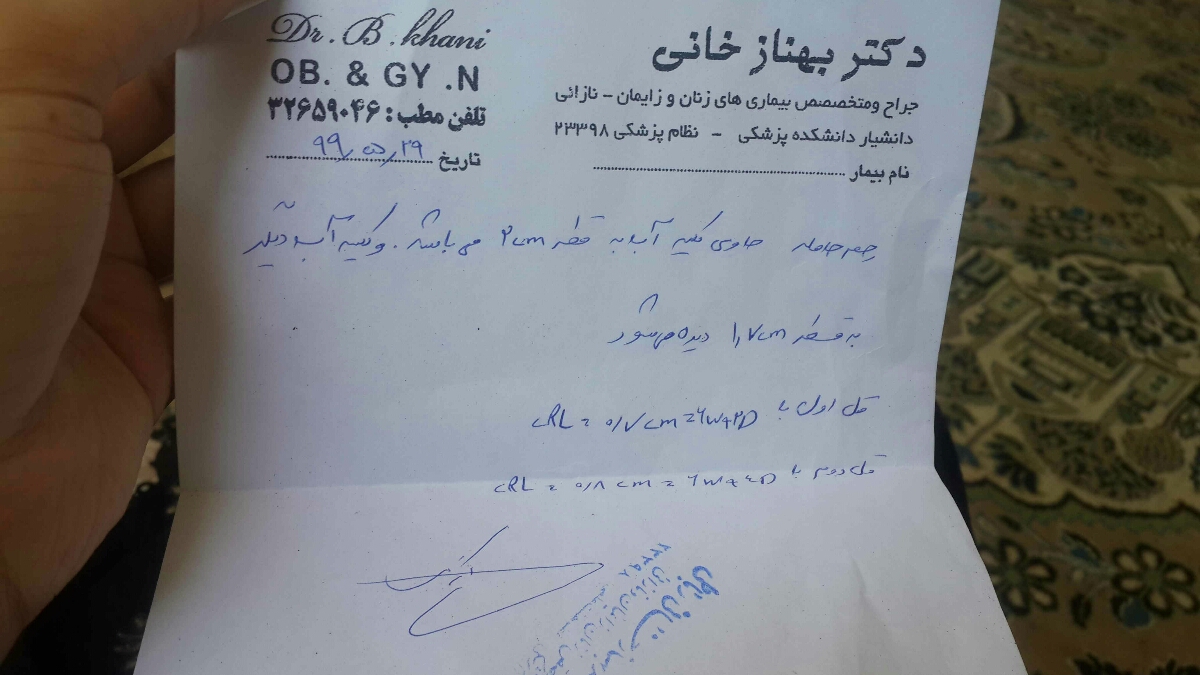 Dr. B. khani
OB. & GY .N
تلفن مطب : ۳۲۶۵۹۰۴۶
تاریخ ۹۹/۵/۲۹
دکتر بهناز خانی
جراح ومتخصصص بیماری های زنان و زایمان - نازائی
دانشیار دانشکده پزشکی - نظام پزشکی ۲۳۳۹۸
نام بیمار
رحم حامله حاوی کیسه آب به قطر ۲cm می باشد. و کیسه آب دیگر
به قطر ۱٫۷cm دیده می شود
قل اول با CRL = ۰/۷ cm = ۶w+۴D
قل دوم با CRL = ۰/۸ cm = ۶w+۴D
۲۳۳۹۸